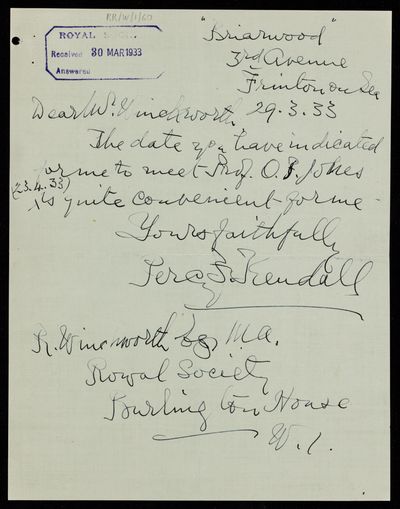 RR/W/1/60
ROYAL SOC.
Received 30 MAR 1933
Answered
"Briarwood"
3rd Avenue
Frinton on Sea
29.3.33
Dear Mr. Winckworth,
The date you have indicated
for me to meet Prof. O.T. Jones
(23.4.33)
is quite convenient for me
Yours faithfully
Percy F. Kendall
R. Winckworth Esq M.A.
Royal Society
Burlington House
W.1.